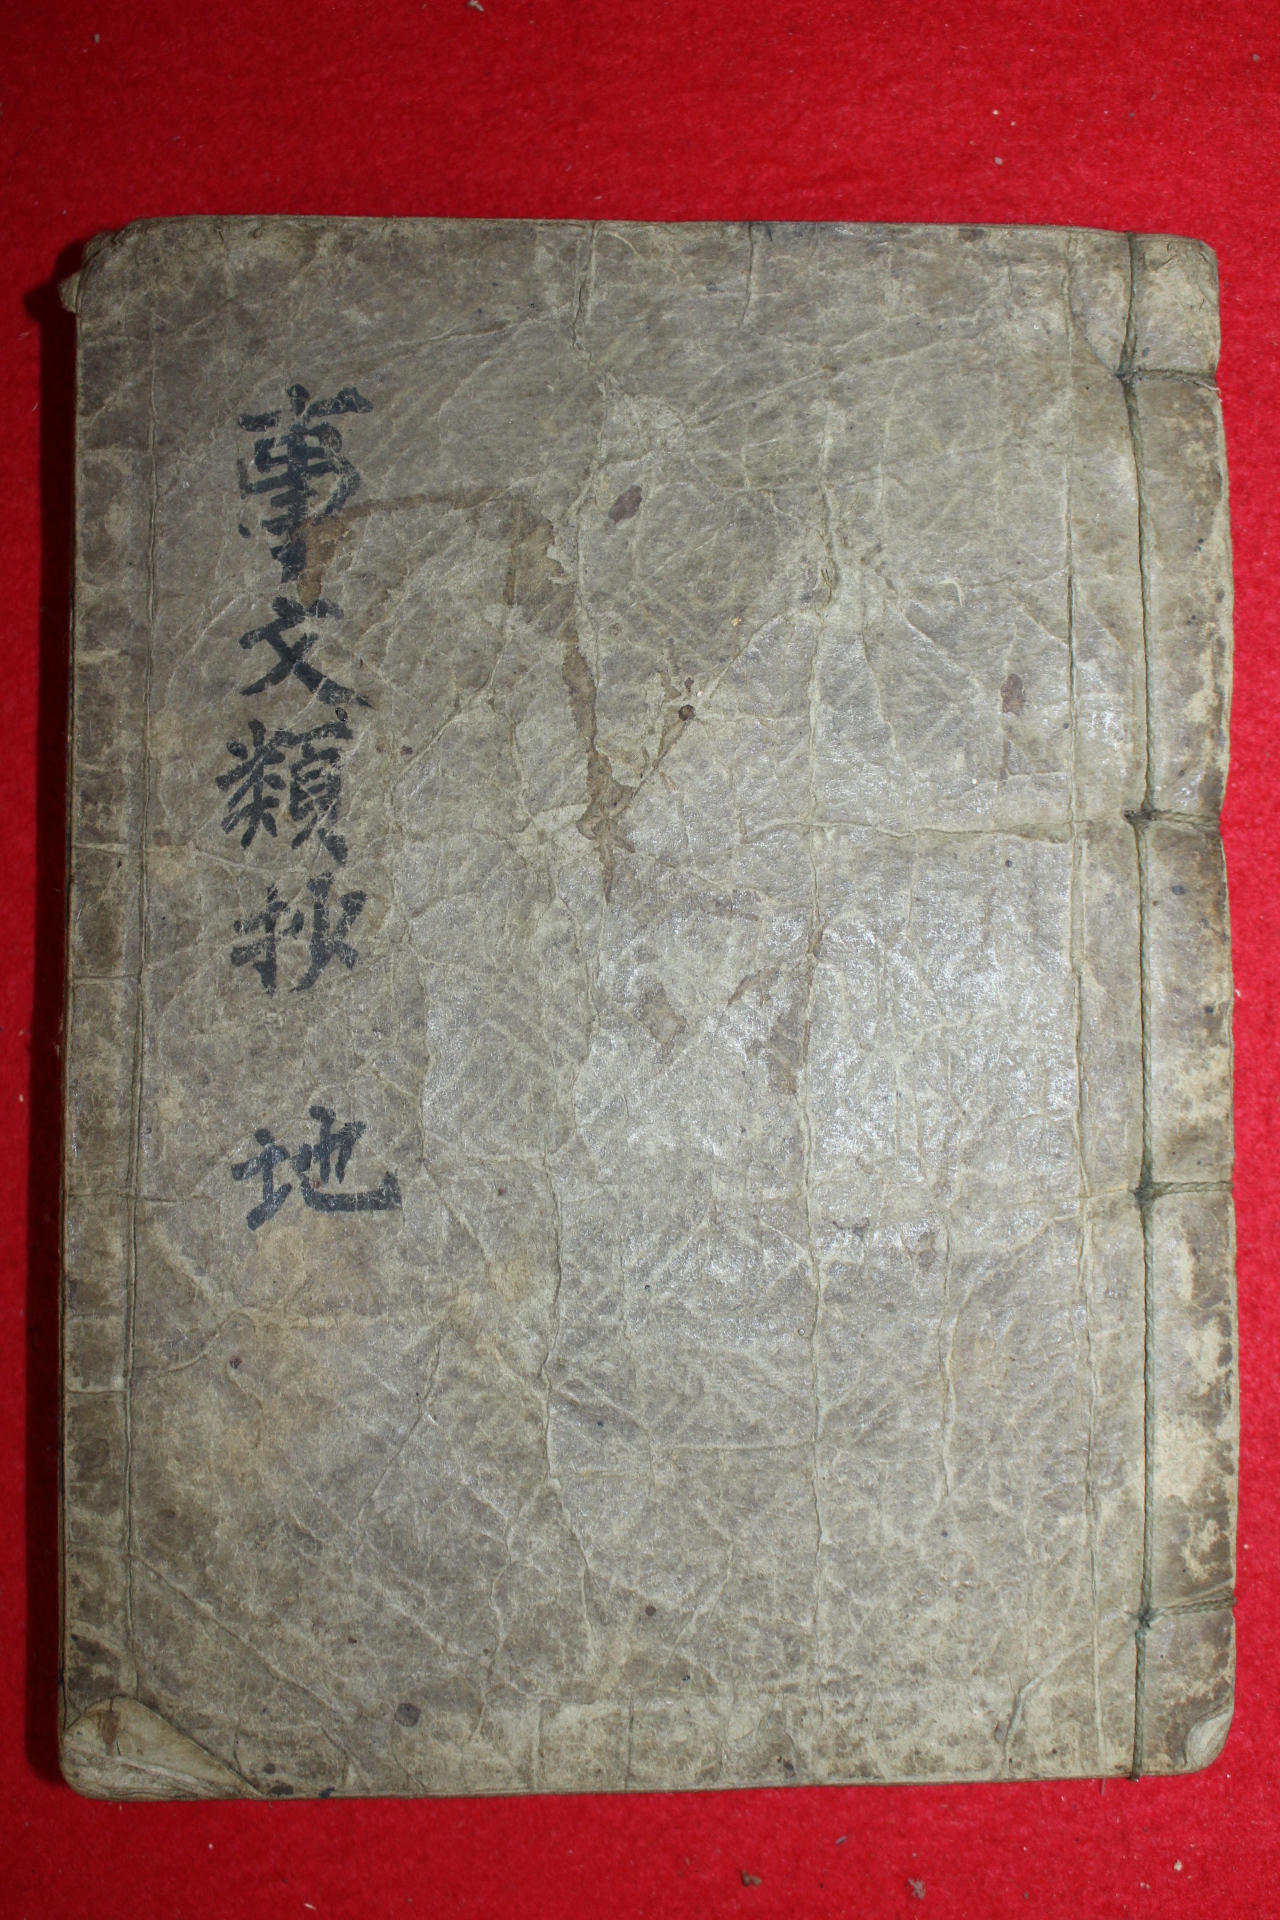 事文類抄 地